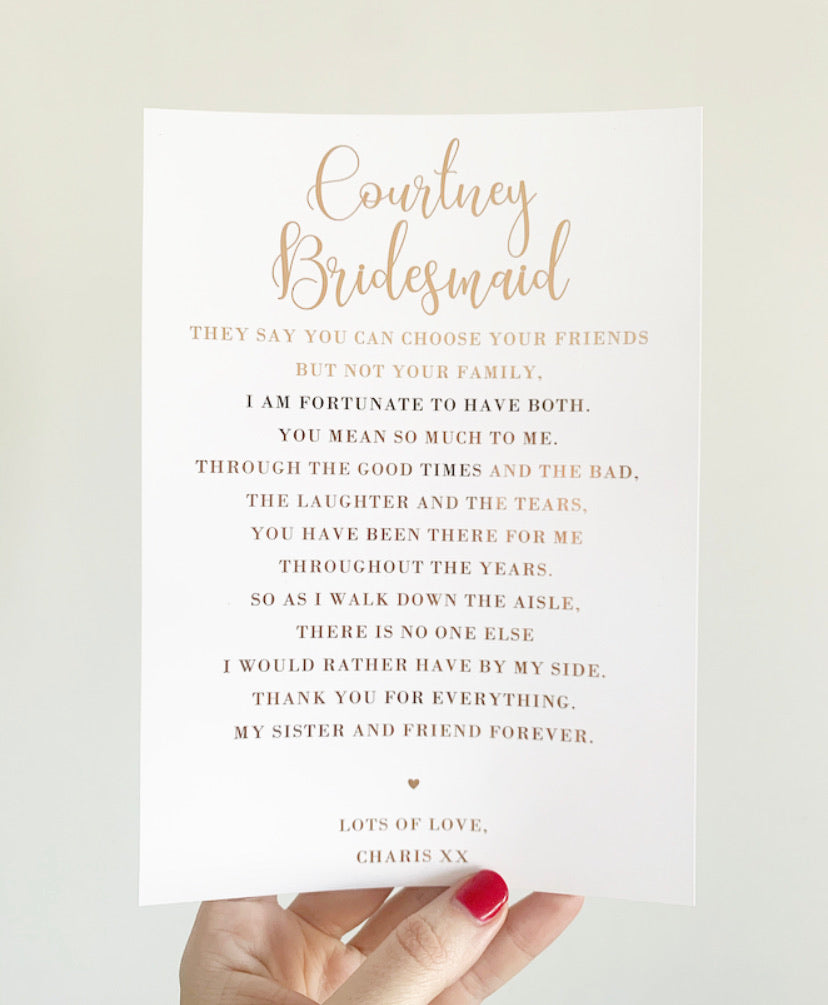 Courtney
Bridesmaid
THEY SAY YOU CAN CHOOSE YOUR FRIENDS
BUT NOT YOUR FAMILY,
I AM FORTUNATE TO HAVE BOTH.
YOU MEAN SO MUCH TO ME.
THROUGH THE GOOD TIMES AND THE BAD,
THE LAUGHTER AND THE TEARS,
YOU HAVE BEEN THERE FOR ME
THROUGHOUT THE YEARS.
SO AS I WALK DOWN THE AISLE,
THERE IS NO ONE ELSE
I WOULD RATHER HAVE BY MY SIDE.
THANK YOU FOR EVERYTHING.
MY SISTER AND FRIEND FOREVER.
LOTS OF LOVE,
CHARIS XX